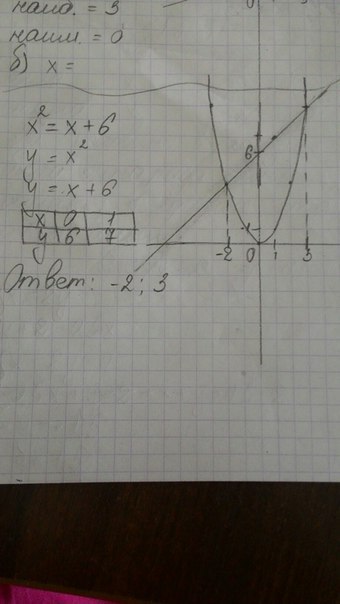 наиб. = 3
наим. = 0
б) x =
x² = x + 6
y = x²
y = x + 6
x 0 1
y 6 7
6
1
-2 0 3
Ответ: -2; 3